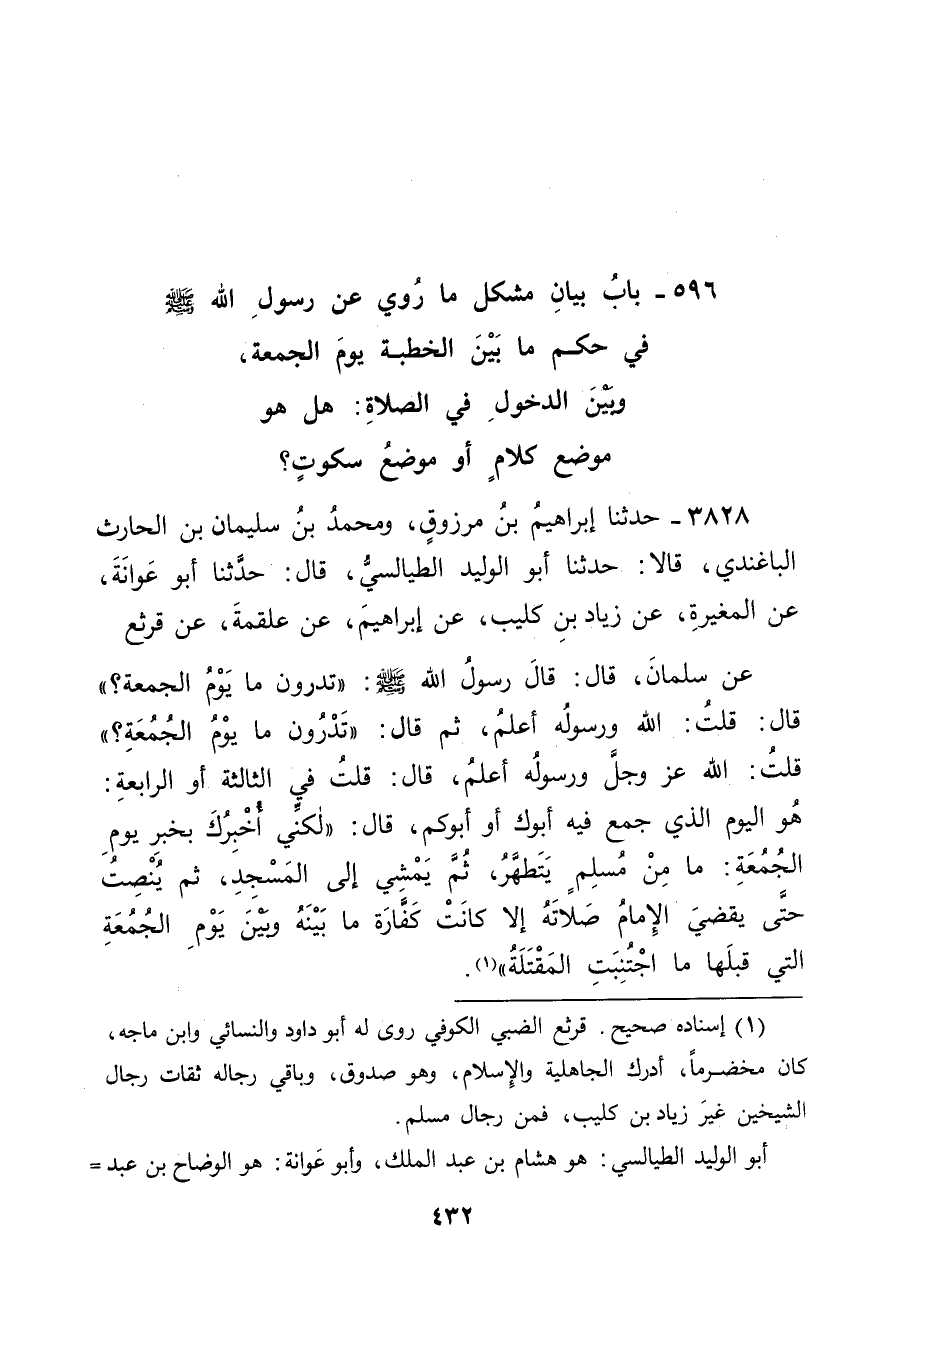 ٥٩٦ - بابُ بيانِ مشكل ما رُوي عن رسولِ الله ﷺ
في حكم ما بَيْنَ الخطبة يومَ الجمعة،
وبَيْنَ الدخولِ في الصلاةِ: هل هو
موضع كلامٍ أو موضعُ سكوتٍ؟
٣٨٢٨ - حدثنا إبراهيمُ بنُ مرزوقٍ، ومحمدُ بنُ سليمان بن الحارث
الباغندي، قالا: حدثنا أبو الوليد الطيالسيُّ، قال: حدَّثنا أبو عَوانَةَ،
عن المغيرةِ، عن زياد بنِ كليب، عن إبراهيمَ، عن علقمةَ، عن قرثع
عن سلمانَ، قال: قالَ رسولُ الله ﷺ: «تدرون ما يَوْمُ الجمعة؟»
قال: قلتُ: الله ورسولُه أعلمُ، ثم قال: «تَدْرُون ما يوْمُ الجُمُعَةِ؟»
قلتُ: الله عز وجلَّ ورسولُه أعلمُ، قال: قلتُ في الثالثة أو الرابعةِ:
هُو اليوم الذي جمع فيه أبوك أو أبوكم، قال: «لٰكنِّي أُخْبِرُكَ بخبرِ يومِ
الجُمُعَةِ: ما مِنْ مُسلِمٍ يَتَطهَّرُ، ثُمَّ يَمْشِي إلى المَسْجِدِ، ثم يُنْصِتُ
حتَّى يقضيَ الإمامُ صَلاتَهُ إلا كانَتْ كَفَّارَة ما بَيْنَهُ وبَيْنَ يَوْمِ الجُمُعَةِ
التي قبلَها ما اجْتُنِبَتِ المَقْتَلَةُ»(١).
(١) إسناده صحيح. قرثع الضبي الكوفي روى له أبو داود والنسائي وابن ماجه،
كان مخضرماً، أدرك الجاهلية والإسلام، وهو صدوق، وباقي رجاله ثقات رجال
الشيخين غيرَ زياد بن كليب، فمن رجال مسلم.
أبو الوليد الطيالسي: هو هشام بن عبد الملك، وأبو عَوانة: هو الوضاح بن عبد =
٤٣٢